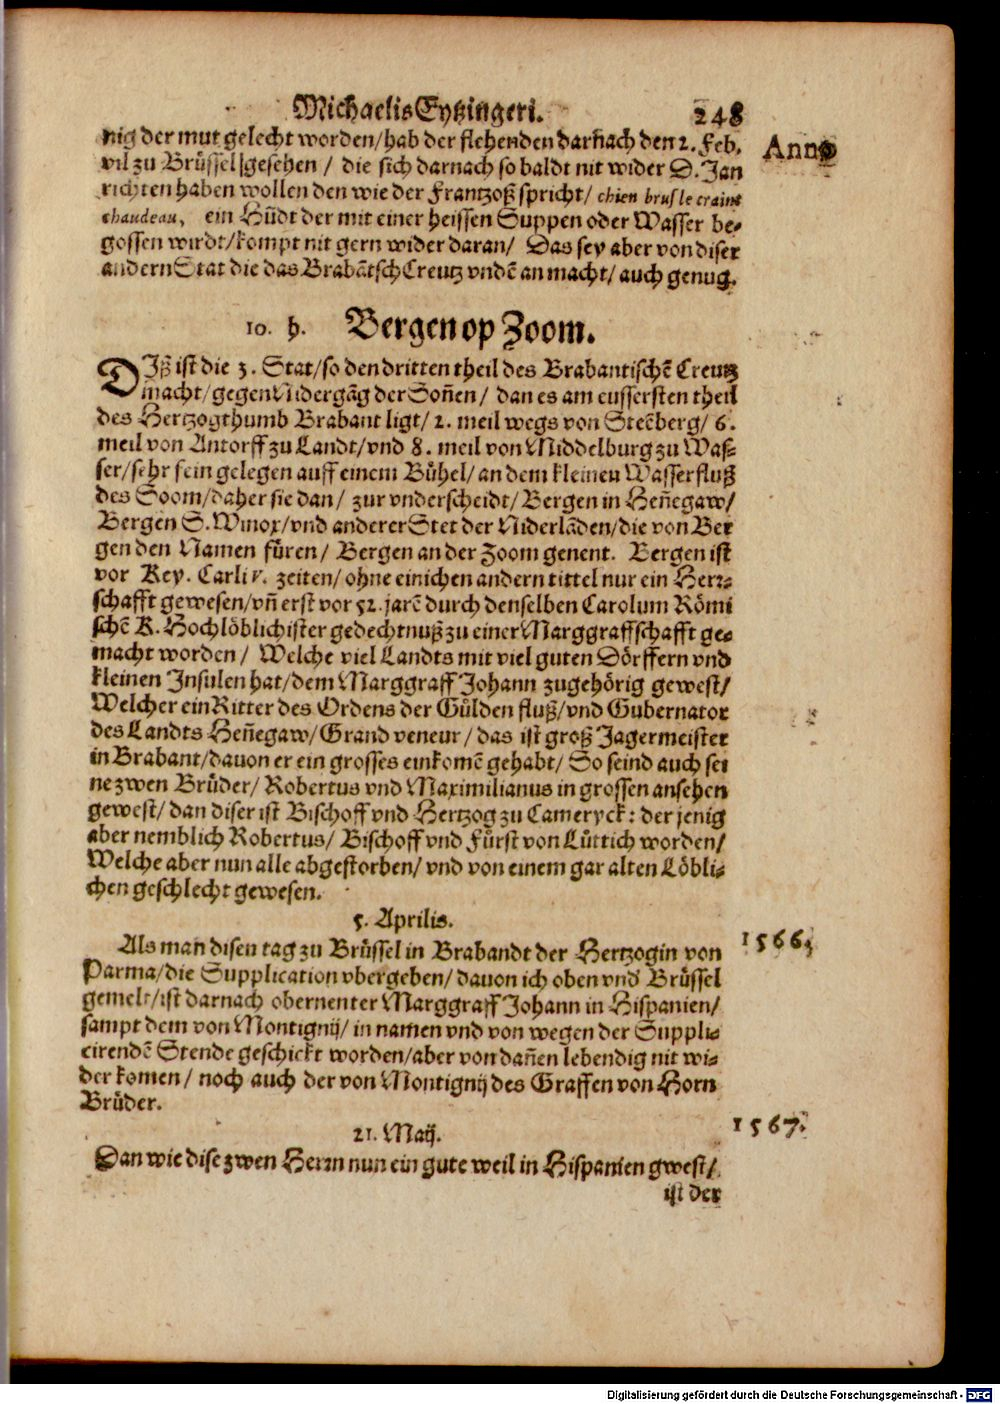 Michaelis Eytzingeri. 248
Anno
nig der mut gelecht worden/hab der flehenden darnach den 2. Feb.
vil zu Brüssel gesehen / die sich darnach so baldt nit wider D. Jan
richten haben wollen den wie der Frantzoß spricht/ chien brusle craint
chaudeau, ein Hũdt der mit einer heissen Suppen oder Wasser be⸗
gossen wirdt/kompt nit gern wider daran/ Das sey aber von diser
andern Stat die das Brabãtsch Creutz vndẽ an macht/ auch genug.
10. h. Bergen op Zoom.
DIß ist die 3. Stat/so den dritten theil des Brabantischẽ Creutz
macht/gegen Nidergãg der Soñen/ dan es am eussersten theil
des Hertzogthumb Brabant ligt/ 2. meil wegs von Steẽberg/ 6.
meil von Antorff zu Landt/vnd 8. meil von Middelburg zu Was⸗
ser/sehr fein gelegen auff einem Bühel/ an dem kleinen Wasserfluß
des Soom/daher sie dan/ zur vnderscheidt/ Bergen in Heñegaw/
Bergen S. Winox/vnd anderer Stet der Niderlãden/die von Ber
gen den Namen füren/ Bergen an der Zoom genent. Bergen ist
vor Key. Carli V. zeiten/ohne einichen andern tittel nur ein Herr⸗
schafft gewesen/vñ erst vor 52. jarẽ durch denselben Carolum Römi
schẽ K. Hochlöblichister gedechtnuß zu einer Marggraffschafft ge⸗
macht worden/ Welche viel Landts mit viel guten Dörffern vnd
kleinen Insulen hat/dem Marggraff Johann zugehörig gewest/
Welcher ein Ritter des Ordens der Gülden fluß/vnd Gubernator
des Landts Heñegaw/Grand veneur/ das ist groß Jagermeister
in Brabant/davon er ein grosses einkomẽ gehabt/ So seind auch sei
ne zwen Brüder/ Robertus vnd Maximilianus in grossen ansehen
gewest/ dan diser ist Bischoff vnd Hertzog zu Cameryck: der jenig
aber nemblich Robertus/ Bischoff vnd Fürst von Lüttich worden/
Welche aber nun alle abgestorben/ vnd von einem gar alten Löbli⸗
chen geschlecht gewesen.
5. Aprilis.
1566.
Als man disen tag zu Brüssel in Brabandt der Hertzogin von
Parma/die Supplication vbergeben/ davon ich oben vnd Brüssel
gemelt/ist darnach obernenter Marggraff Johann in Hispanien/
sampt dem von Montignij/ in namen vnd von wegen der Suppli⸗
cirendẽ Stende geschickt worden/aber von dañen lebendig nit wi⸗
der komen/ noch auch der von Montignij des Graffen von Horn
Brüder.
21. Maij.
1567.
Dan wie dise zwen Herrn nun ein gute weil in Hispanien gwest/
ist der
Digitalisierung gefördert durch die Deutsche Forschungsgemeinschaft - DFG